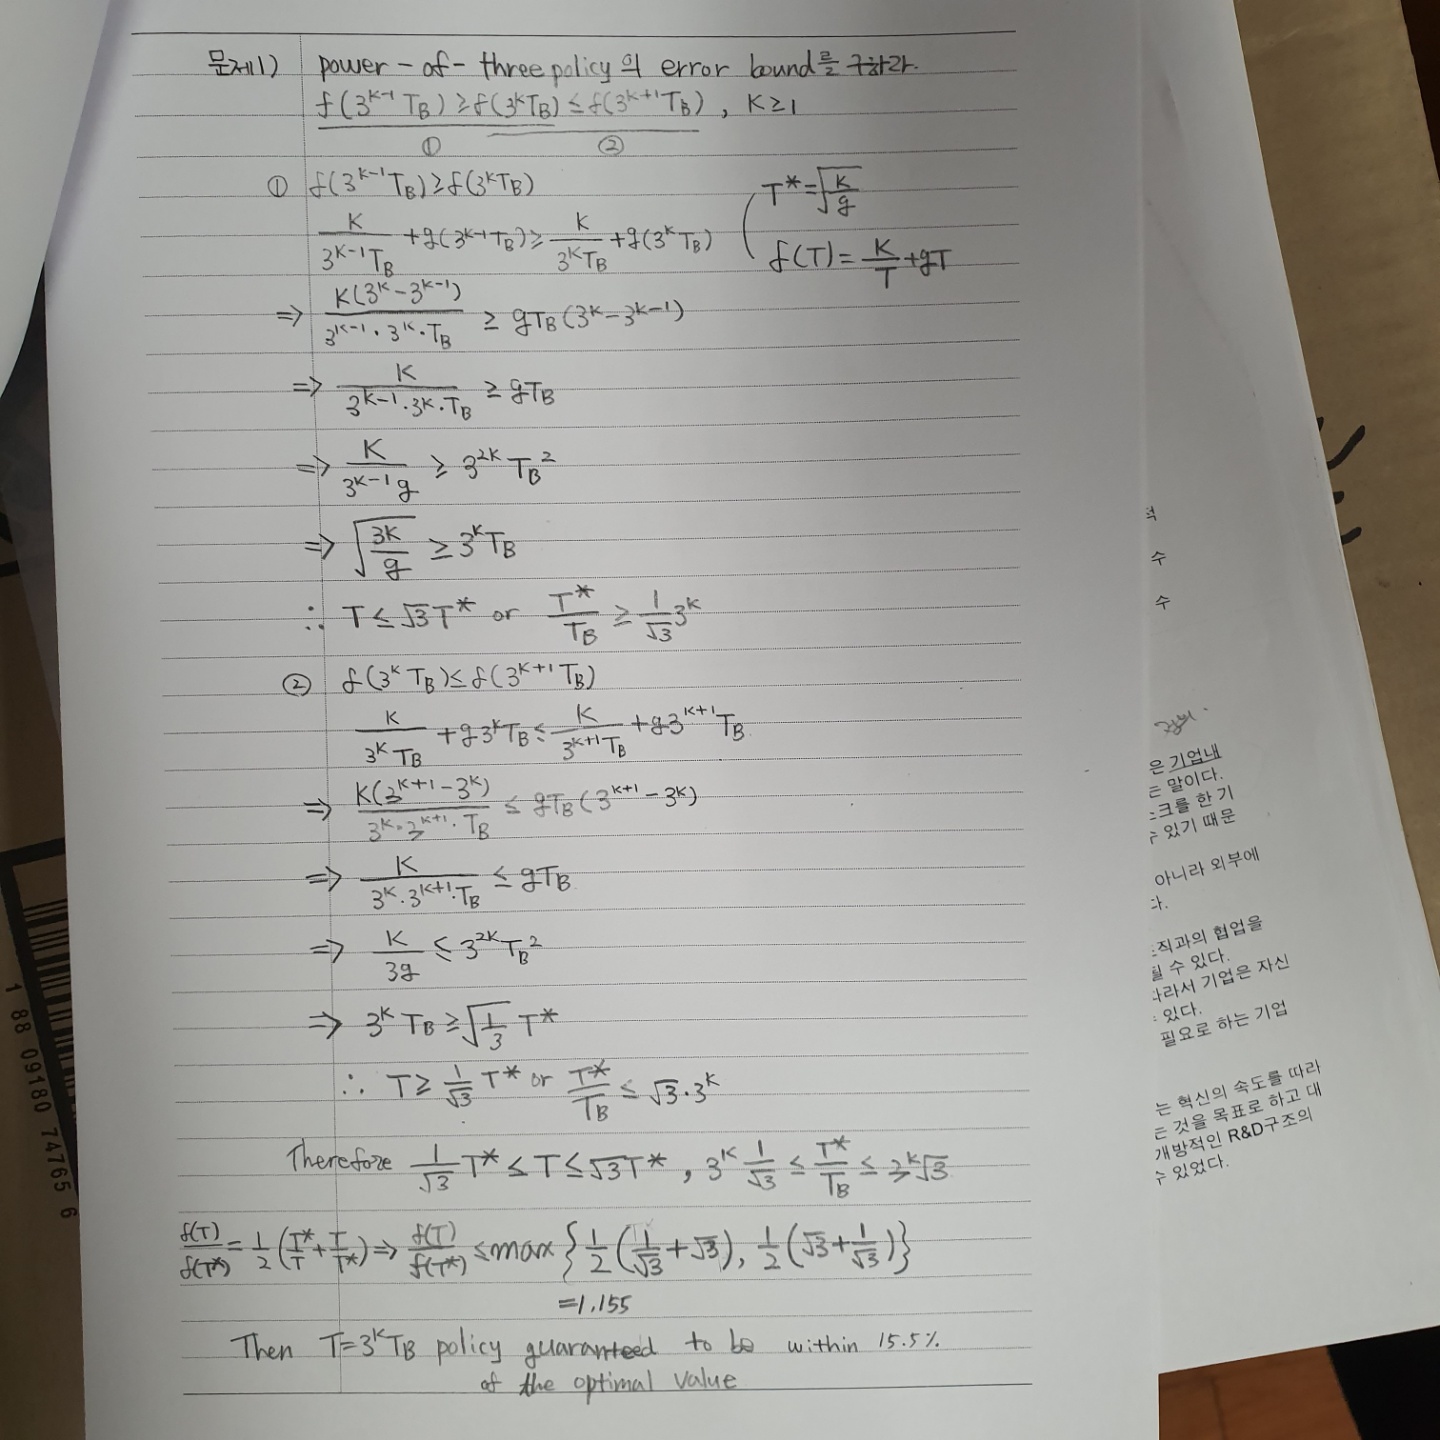 문제1) power-of-three policy의 error bound를 구하라.
f(3^{k-1} T_B) ≥ f(3^k T_B) ≤ f(3^{k+1} T_B), K≥1
① ②
① f(3^{k-1} T_B) ≥ f(3^k T_B)
T* = √(K/g)
K/(3^{k-1} T_B) + g(3^{k-1} T_B) ≥ K/(3^k T_B) + g(3^k T_B)
f(T) = K/T + gT
⇒ K(3^k - 3^{k-1})/(3^{k-1}·3^k·T_B) ≥ gT_B(3^k - 3^{k-1})
⇒ K/(3^{k-1}·3^k·T_B) ≥ gT_B
⇒ K/(3^{k-1} g) ≥ 3^{2k} T_B^2
⇒ √(3K/g) ≥ 3^k T_B
∴ T ≤ √3 T* or T*/T_B ≥ (1/√3) 3^k
② f(3^k T_B) ≤ f(3^{k+1} T_B)
K/(3^k T_B) + g3^k T_B ≤ K/(3^{k+1} T_B) + g3^{k+1} T_B
⇒ K(3^{k+1} - 3^k)/(3^k·3^{k+1}·T_B) ≤ gT_B(3^{k+1} - 3^k)
⇒ K/(3^k·3^{k+1}·T_B) ≤ gT_B
⇒ K/(3g) ≤ 3^{2k} T_B^2
⇒ 3^k T_B ≥ √(1/3) T*
∴ T ≥ (1/√3) T* or T*/T_B ≤ √3·3^k
Therefore (1/√3) T* ≤ T ≤ √3 T*, 3^k (1/√3) ≤ T*/T_B ≤ 3^k √3
f(T)/f(T*) = 1/2 (T*/T + T/T*) ⇒ f(T)/f(T*) ≤ max{1/2 (1/√3 + √3), 1/2 (√3 + 1/√3)}
= 1.155
Then T=3^k T_B policy guaranteed to be within 15.5%
of the optimal value
수
수
은 기업내
는 말이다.
크를 한 기
수 있기 때문
아니라 외부에
다.
직과의 협업을
될 수 있다.
따라서 기업은 자신
있다.
필요로 하는 기업
는 혁신의 속도를 따라
는 것을 목표로 하고 대
개방적인 R&D구조의
수 있었다.
1 88 09180 74765 6